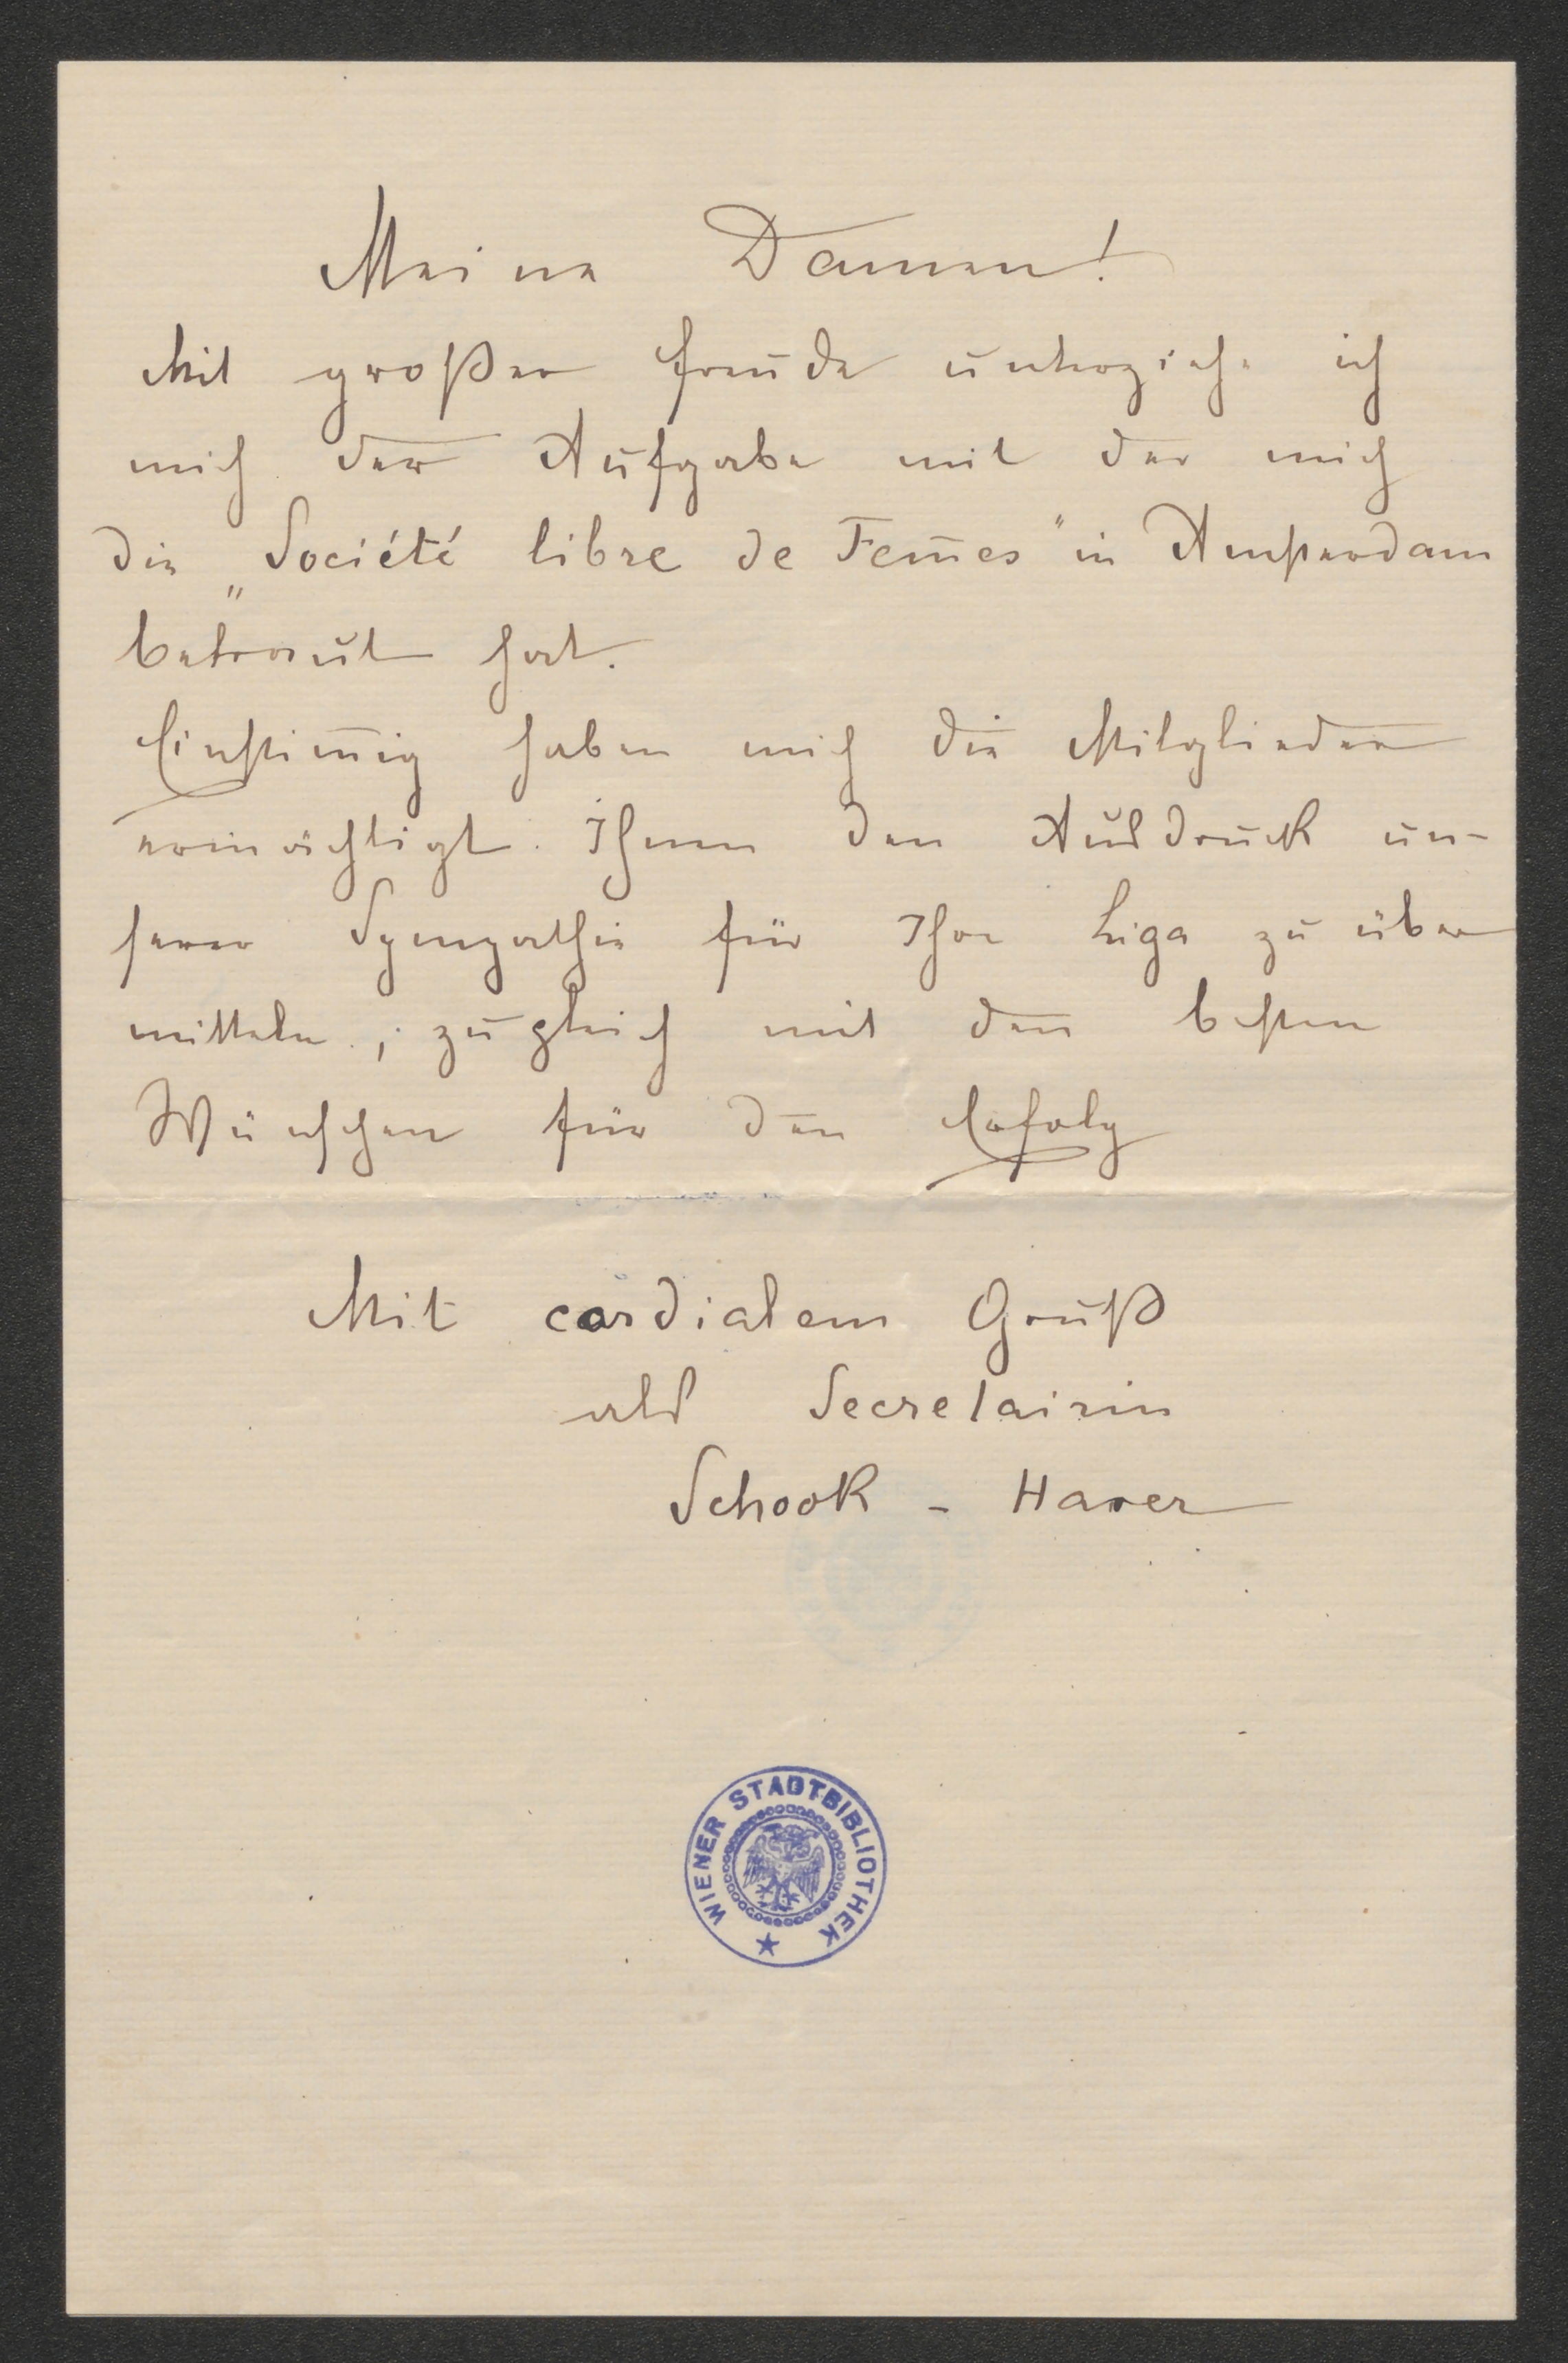 Meine Damen!
Mit großer Freude unterziehe ich
mich der Aufgabe mit der mich
die „Société libre de Fem̄es" in Amsterdam
betraut hat.
Einstim̄ig haben mich die Mitglieder
ermächtigt Ihnen den Ausdruck un-
serer Sympathie für Ihre Liga zu über
mitteln, zugleich mit den besten
Wünschen für den Erfolg
Mit cordialem Gruß
als Secretairin
Schook - Haver
WIENER STADTBIBLIOTHEK